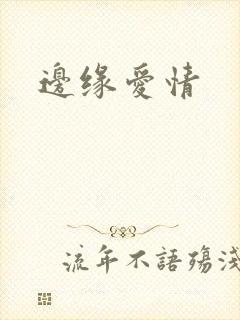 邊缘愛情
流年不語殤淺